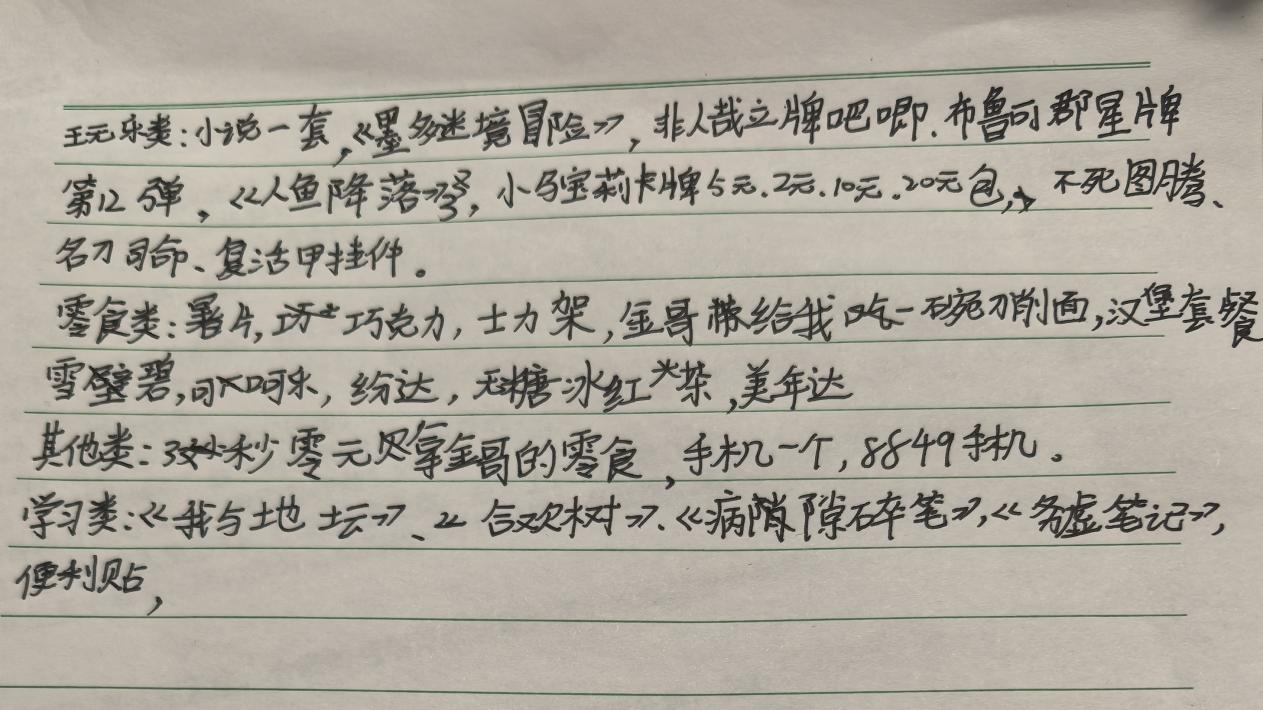 玩乐类:小说一套,《墨多迷境冒险》,非人哉立牌吧唧.布鲁可郡星牌
第12弹,《人鱼降落》,小马宝莉卡牌5元.2元.10元.20元包,不死图腾、
名刀司命、复活甲挂件。
零食类:暑片,巧克力,士力架,金哥带给我吃一碗刀削面,汉堡套餐
雪碧,可乐,纷达,无糖冰红茶,美年达
其他类:3秒零元贝拿金哥的零食,手机一个,8849手机。
学习类:《我与地坛》、《合欢树》.《病隙碎笔》,《务虚笔记》,
便利贴,